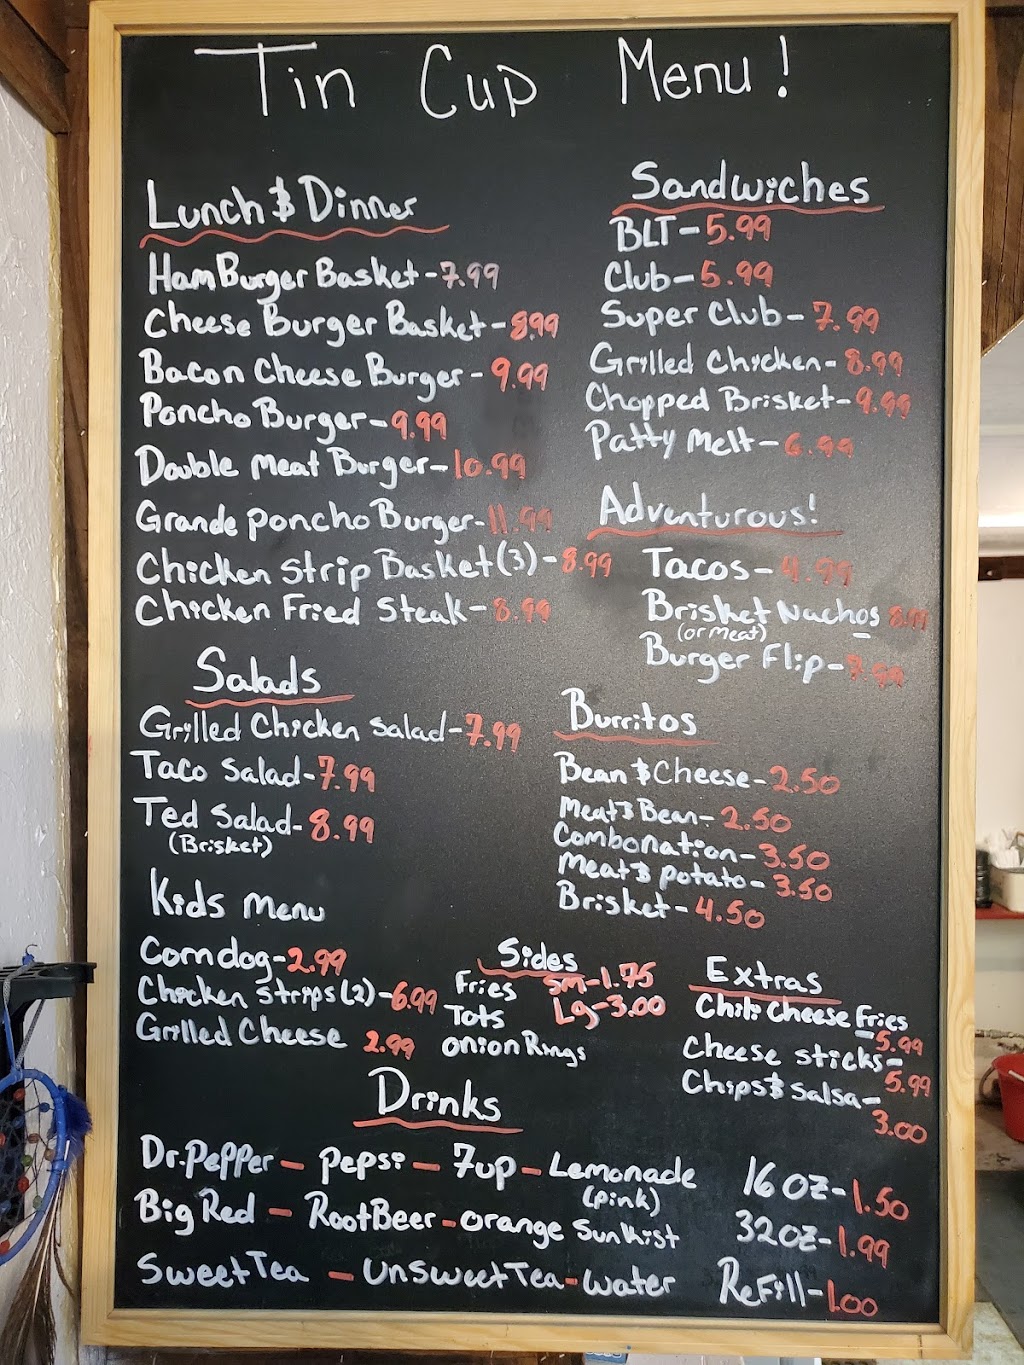 Tin Cup Menu!
Lunch & Dinner
HamBurger Basket - 7.99
Cheese Burger Basket - 8.99
Bacon Cheese Burger - 9.99
Poncho Burger - 9.99
Double meat Burger - 10.99
Grande Poncho Burger - 11.99
Chicken Strip Basket (3) - 8.99
Chicken Fried Steak - 8.99
Salads
Grilled Chicken Salad - 7.99
Taco Salad - 7.99
Ted Salad - 8.99
(Brisket)
Kids menu
Corndog - 2.99
Chicken Strips (2) - 6.99
Grilled Cheese 2.99
Sandwiches
BLT - 5.99
Club - 5.99
Super Club - 7.99
Grilled Chicken - 8.99
Chopped Brisket - 9.99
Patty Melt - 6.99
Adventurous!
Tacos - 4.99
Brisket Nachos
(or meat)
Burger Flip - 7.99
Burritos
Bean & Cheese - 2.50
Meat & Bean - 2.50
Combonation - 3.50
Meat & potato - 3.50
Brisket - 4.50
Sides
Fries sm - 1.75
Tots Lg - 3.00
onion Rings
Extras
Chili Cheese Fries
- 5.99
Cheese sticks -
5.99
Chips & Salsa -
3.00
Drinks
Dr. Pepper - Pepsi - 7up - Lemonade
(pink)
Big Red - RootBeer - orange Sunkist
Sweet Tea - UnSweet Tea - Water
16 oz - 1.50
32oz - 1.99
Refill - 1.00